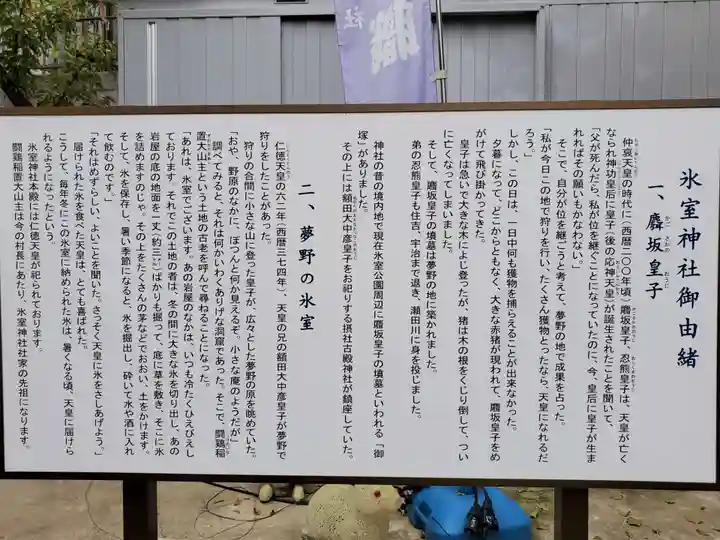 職
社
氷室神社御由緒
一、麛坂皇子
仲哀天皇の時代に(西暦二〇〇年頃)麛坂皇子、忍熊皇子は、天皇が亡く
なられ神功皇后に皇子(後の応神天皇)が誕生されたことを聞いて、
「父が死んだら、私が位を継ぐことになっていたのに、今、皇后に皇子が生ま
れればその願いもかなわない。」
そこで、自分が位を継ごうと考えて、夢野の地で成果を占った。
「私が今日この地で狩りを行い、たくさん獲物とったなら、天皇になれるだ
ろう。」
しかし、この日は、一日中何も獲物を捕らえることが出来なかった。
夕暮になって、どこからともなく、大きな赤猪が現われて、麛坂皇子をめ
がけて飛び掛かってきた。
皇子は急いで大きな木によじ登ったが、猪は木の根をくじり倒して、つい
に亡くなってしまいました。
そして、麛坂皇子の墳墓は夢野の地に築かれました。
弟の忍熊皇子も住吉、宇治まで退き、瀬田川に身を投じました。
神社の昔の境内地で現在氷室公園周辺に麛坂皇子の墳墓といわれる「御
塚」がありました。
その上には額田大中彦皇子をお祀りする摂社古殿神社が鎮座していた。
二、夢野の氷室
仁徳天皇の六二年(西暦三七四年)、天皇の兄の額田大中彦皇子が夢野で
狩りをしたことがあった。
狩りの合間に小さな山に登った皇子が、広々とした夢野の原を眺めていた。
「おや、野原のなかに、ぽつんと何か見えるぞ。小さな庵のようだが」
調べてみると、それは何かいわくありげな洞窟であった。そこで、闘鶏稲
置大山主という土地の古老を呼んで尋ねることになった。
「あれは、氷室でございます。あの岩屋のなかは、いつも冷たくひえびえし
ております。それでこの土地の者は、冬の間に大きな氷を切り出し、あの
岩屋の底の地面を一丈(約三㍍)ばかりも掘って、底に草を敷き、そこに氷
を詰めますのじゃ。その上をたくさんの茅などでおおい、土をかけます。
そして、氷を保存し、暑い季節になると、氷を掘出し、砕いて水や酒に入れ
て飲むのです。」
「それはめずらしい、よいことを聞いた。さっそく天皇に氷をさしあげよう。」
届けられた氷を食べた天皇は、とても喜ばれた。
こうして、毎年冬にこの氷室に納められた氷は、暑くなる頃、天皇に届けら
れるようになったという。
氷室神社本殿には仁徳天皇が祀られております。
闘鶏稲置大山主は今の村長にあたり、氷室神社社家の先祖になります。